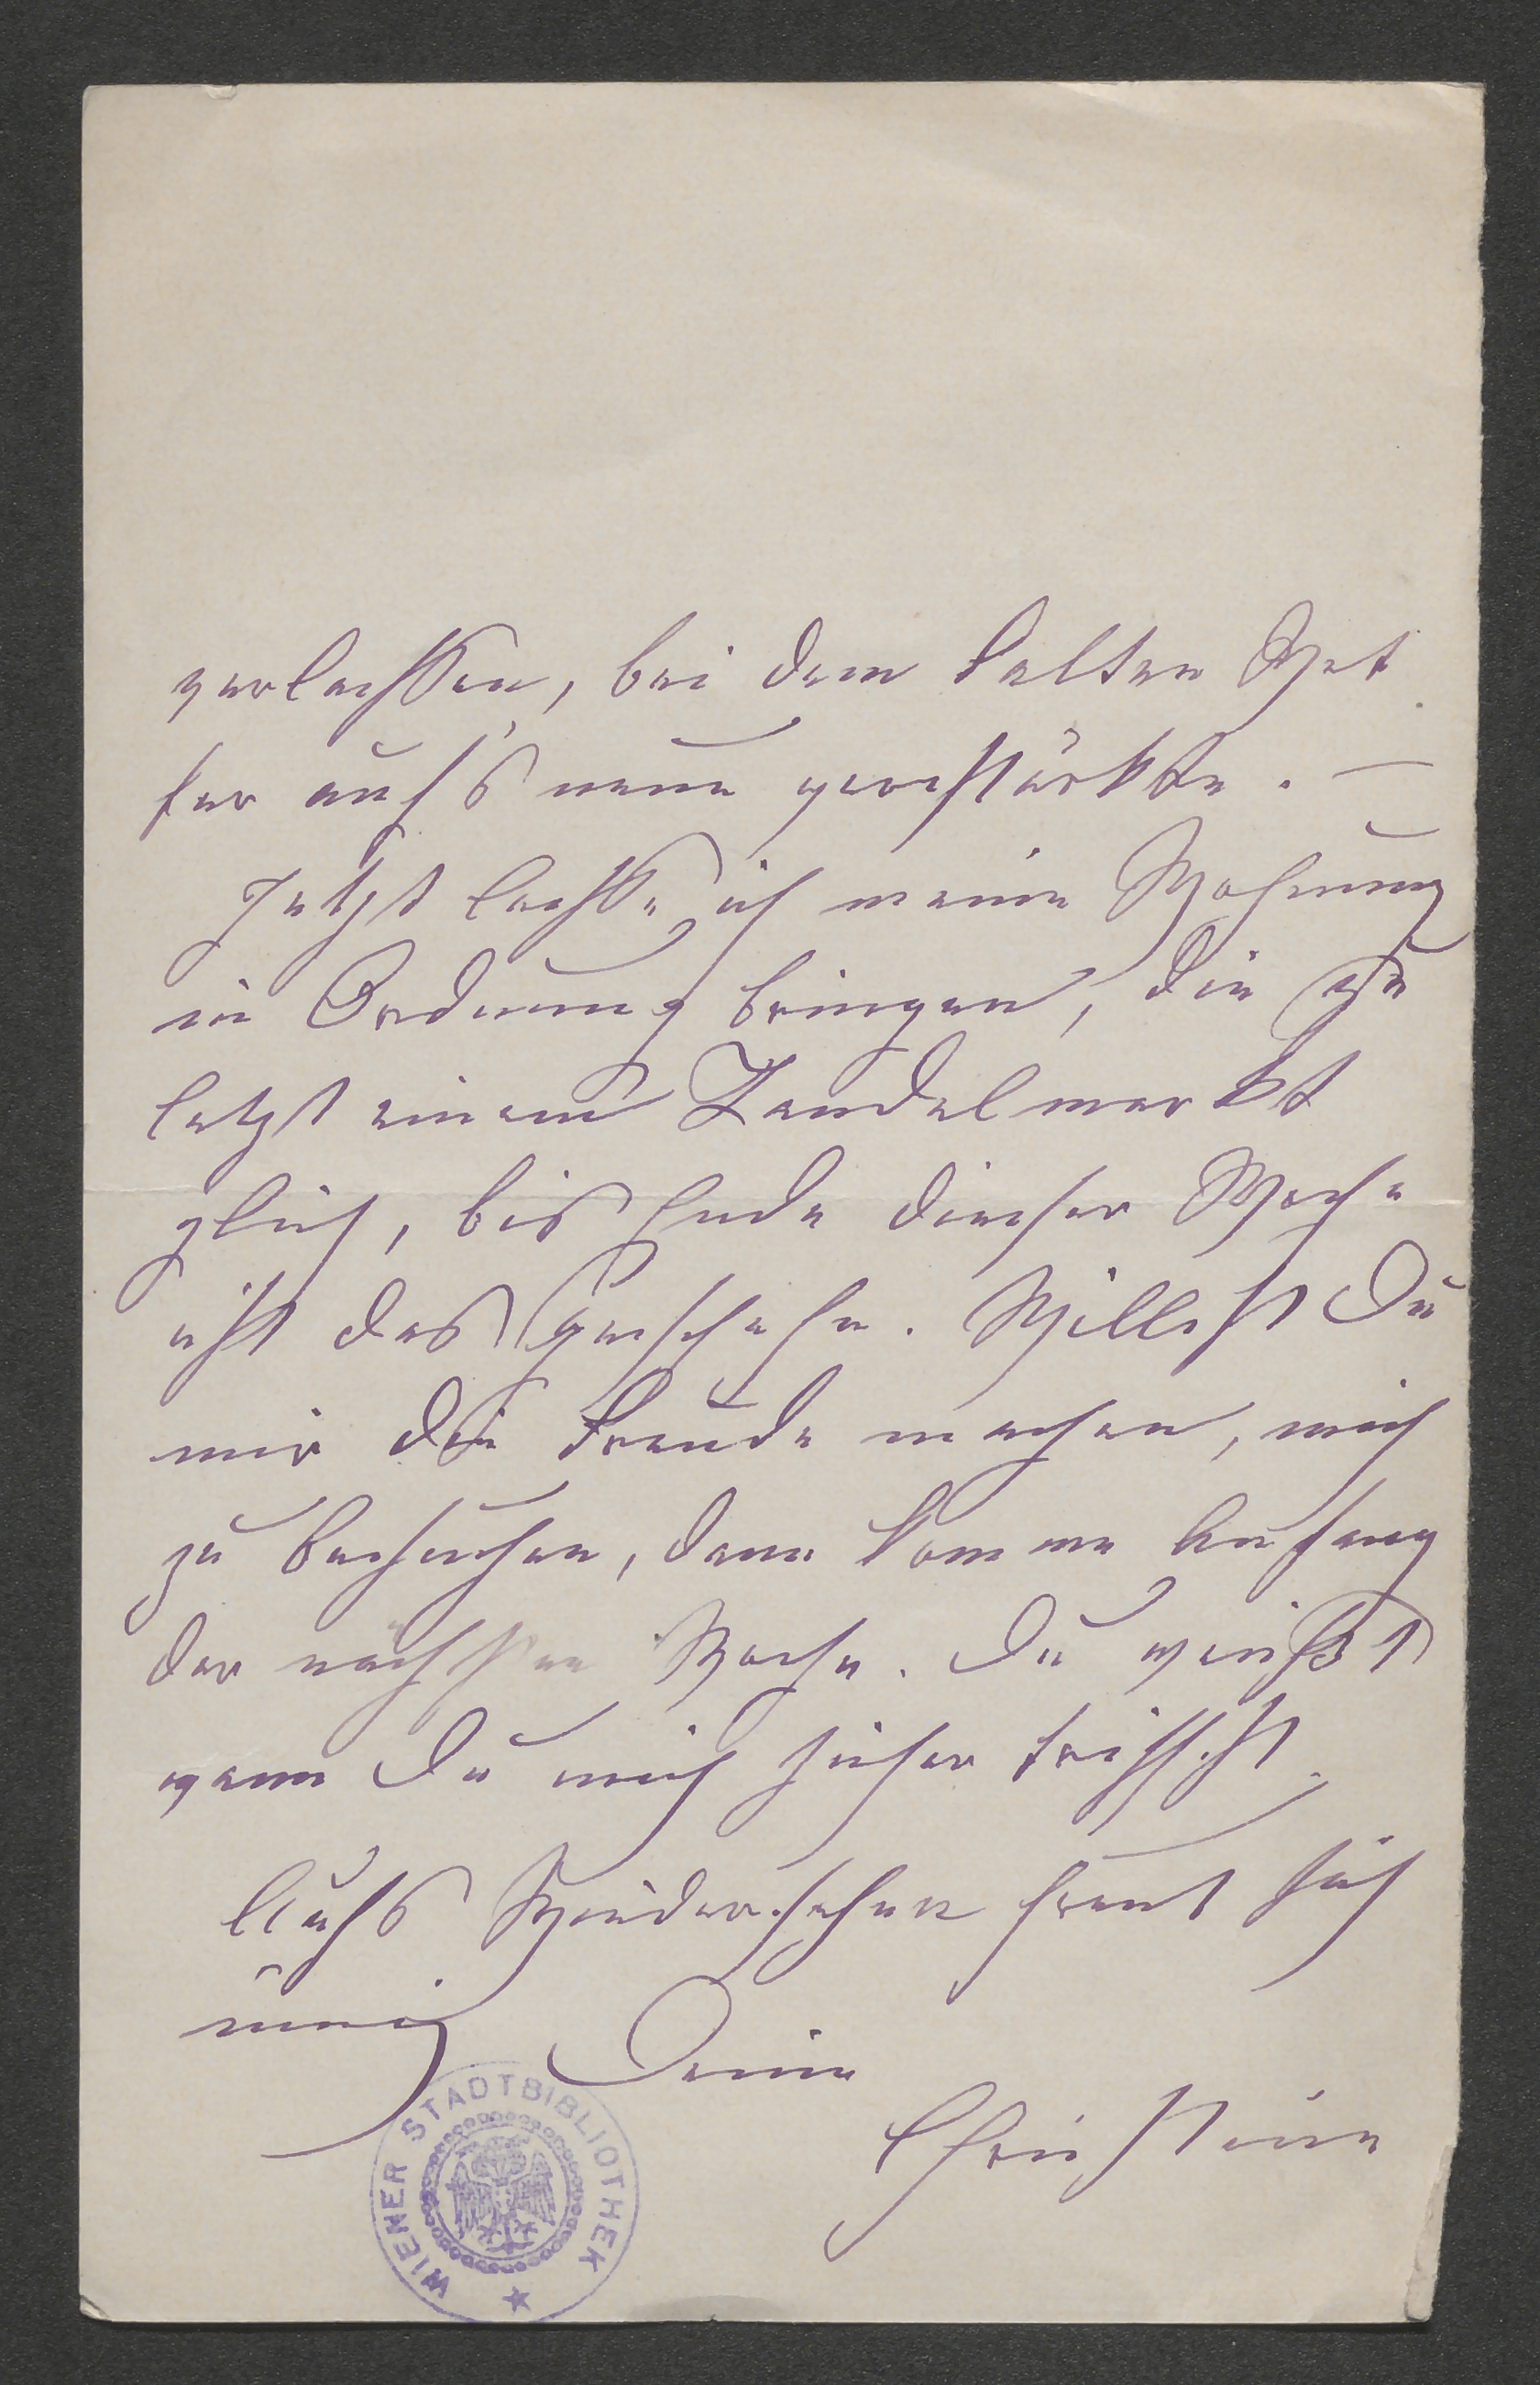 verlassen, bei dem kalten Wet
ter auf's neue verstärkte. —
Jetzt lasse ich meine Wohnung
in Ordnung bringen, die zu
letzt einem Tandelmarkt
glich, bis Ende dieser Woche
ist das geschehn. Willst Du
mir die Freude machen, mich
zu besuchen, dann komme Anfang
der nächsten Woche. Du weißt
wann Du mich sicher triffst.
Aufs Wiedersehen freut sich
innig Deine
Christine
WIENER STADTBIBLIOTHEK